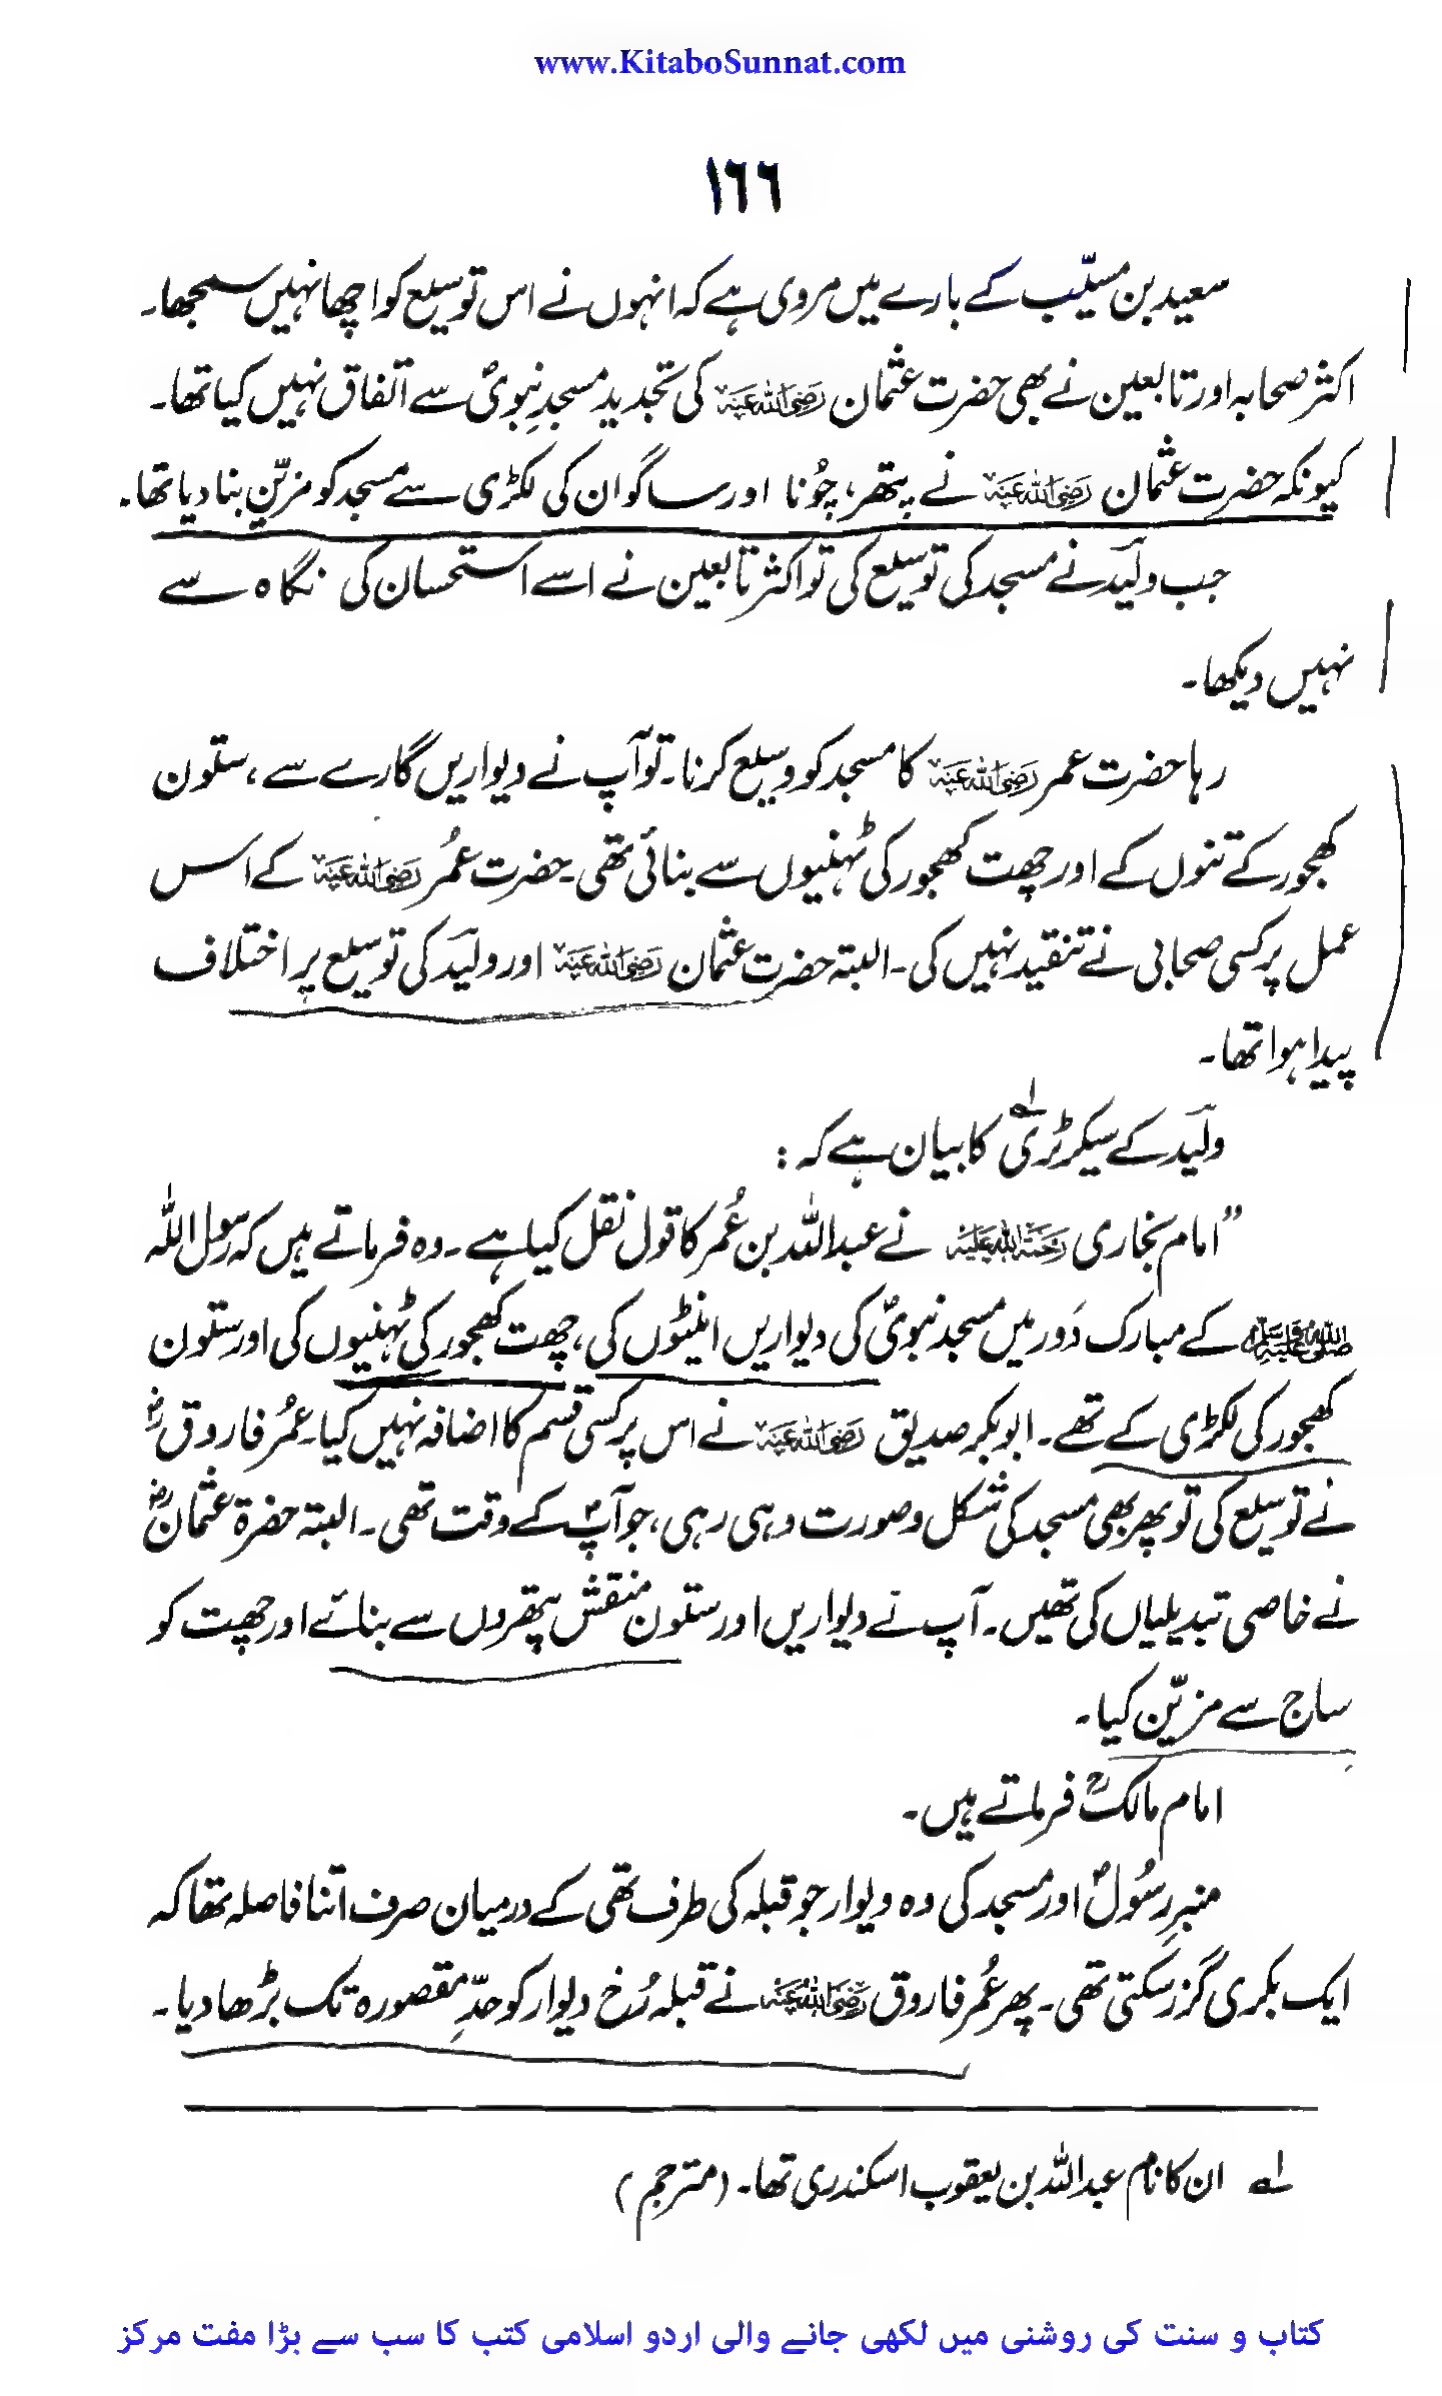 www.KitaboSunnat.com
١٦٦
سعید بن مسیّب کے بارے میں مروی ہے کہ انہوں نے اس توسیع کو اچھا نہیں سمجھا۔
اکثر صحابہ اور تابعین نے بھی حضرت عثمان رضی اللہ عنہ کی تجدید مسجدِ نبویؐ سے اتفاق نہیں کیا تھا۔
کیونکہ حضرت عثمان رضی اللہ عنہ نے پتھر، چُونا اور ساگوان کی لکڑی سے مسجد کو مزیّن بنا دیا تھا۔
جب ولید نے مسجد کی توسیع کی تو اکثر تابعین نے اسے استحسان کی نگاہ سے
نہیں دیکھا۔
رہا حضرت عمر رضی اللہ عنہ کا مسجد کو وسیع کرنا۔ تو آپ نے دیواریں گارے سے، ستون
کھجور کے تنوں کے اور چھت کھجور کی ٹہنیوں سے بنائی تھی۔ حضرت عمُر رضی اللہ عنہ کے اس
عمل پر کسی صحابی نے تنقید نہیں کی۔ البتہ حضرت عثمان رضی اللہ عنہ اور ولید کی توسیع پر اختلاف
پیدا ہوا تھا۔
ولید کے سیکرٹری لہ کا بیان ہے کہ :
”امام بخاری رحمۃ اللہ علیہ نے عبداللہ بن عُمر کا قول نقل کیا ہے۔ وہ فرماتے ہیں کہ رسول اللہ
صلی اللہ علیہ وسلم کے مبارک دَور میں مسجد نبویؐ کی دیواریں اینٹوں کی، چھت کھجور کی ٹہنیوں کی اور ستون
کھجور کی لکڑی کے تھے۔ ابو بکر صدیق رضی اللہ عنہ نے اس پر کسی قسم کا اضافہ نہیں کیا۔ عمُر فاروقؓ
نے توسیع کی تو پھر بھی مسجد کی شکل و صورت وہی رہی، جو آپؐ کے وقت تھی۔ البتہ حضرۃ عثمانؓ
نے خاصی تبدیلیاں کی تھیں۔ آپ نے دیواریں اور ستون منقش پتھروں سے بنائے اور چھت کو
ساج سے مزیّن کیا۔
امام مالکؒ فرماتے ہیں۔
منبرِ رسُولؐ اور مسجد کی وہ دیوار جو قبلہ کی طرف تھی کے درمیان صرف اتنا فاصلہ تھا کہ
ایک بکری گزر سکتی تھی۔ پھر عُمر فاروق رضی اللہ عنہ نے قبلہ رُخ دیوار کو حدِّ مقصورہ تک بڑھا دیا۔
لہ ان کا نام عبداللہ بن یعقوب اسکندری تھا۔ (مترجم)
کتاب و سنت کی روشنی میں لکھی جانے والی اردو اسلامی کتب کا سب سے بڑا مفت مرکز